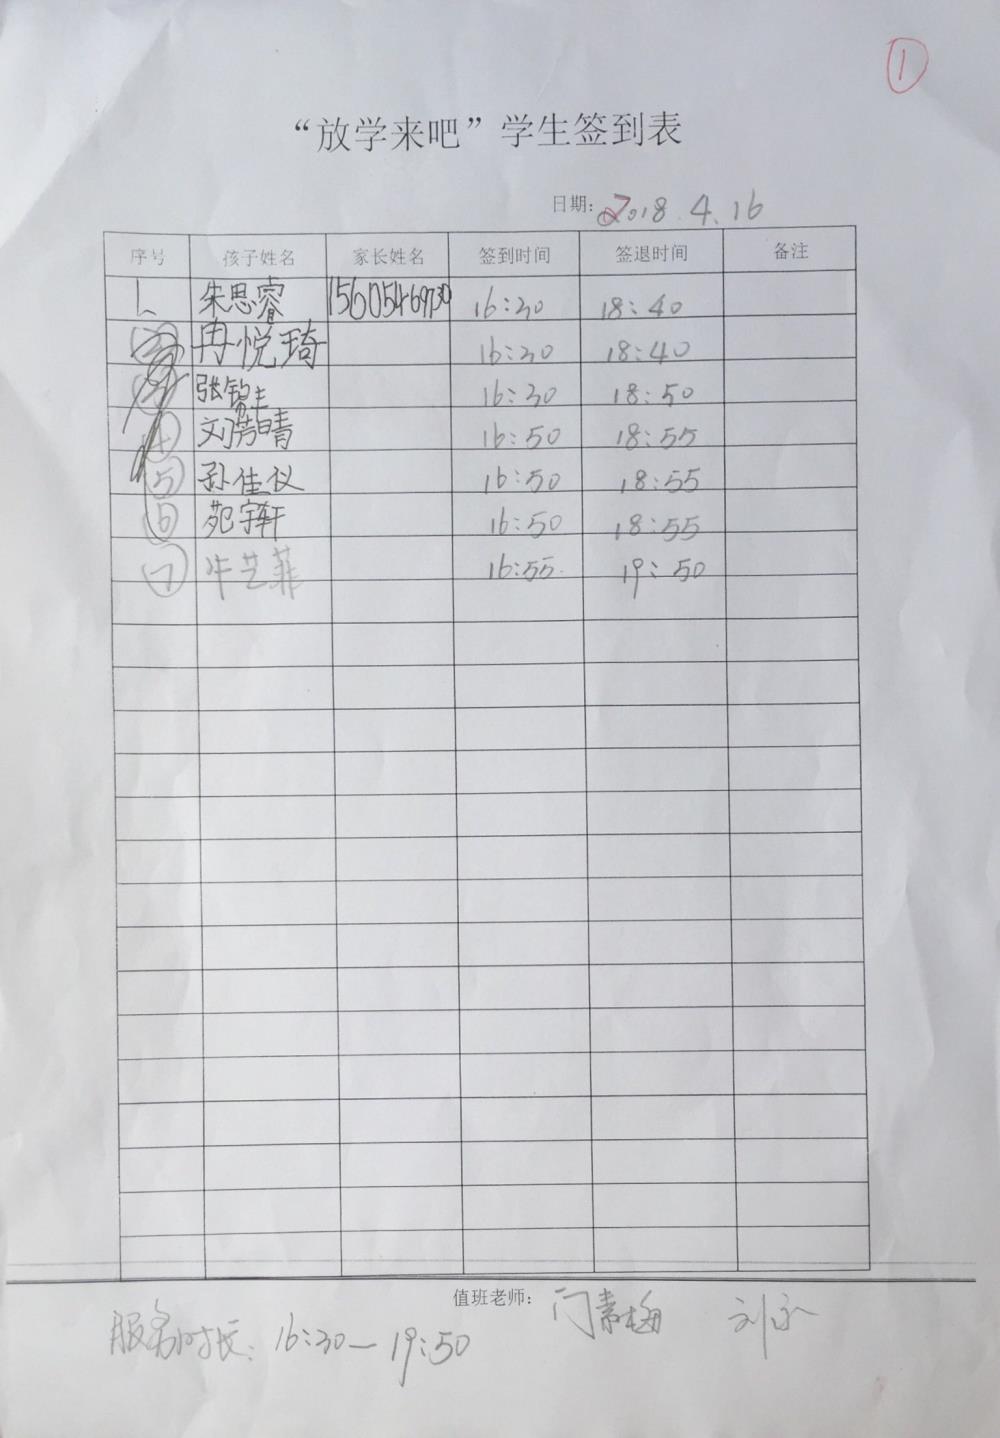 1
“放学来吧”学生签到表
日期: 2018.4.16
序号 孩子姓名 家长姓名 签到时间 签退时间 备注
1 朱思睿 16:30 18:40
冉悦琦 16:30 18:40
张锦 16:30 18:50
4 刘 晴 16:50 18:55
5 孙佳仪 16:50 18:55
6 苑宇轩 16:50 18:55
7 牛艺菲 16:55 19:50
值班老师: 门素梅 刘
服务时长: 16:30—19:50